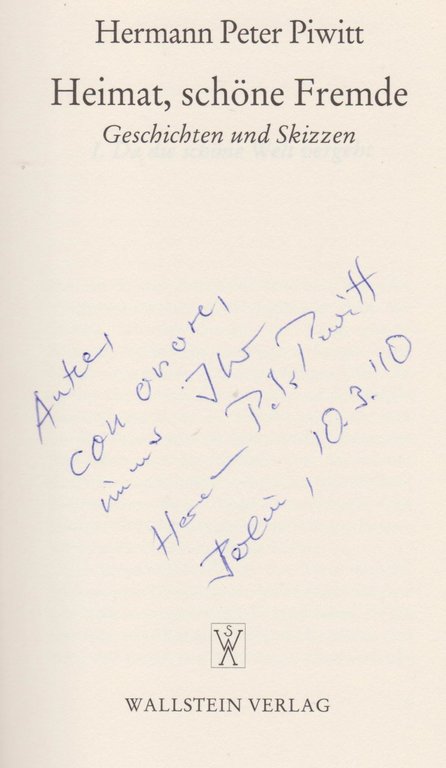 Hermann Peter Piwitt
Heimat, schöne Fremde
Geschichten und Skizzen
con onore,
immer Ihr
Hermann Peter Piwitt
Berlin, 10.3.'10
WALLSTEIN VERLAG